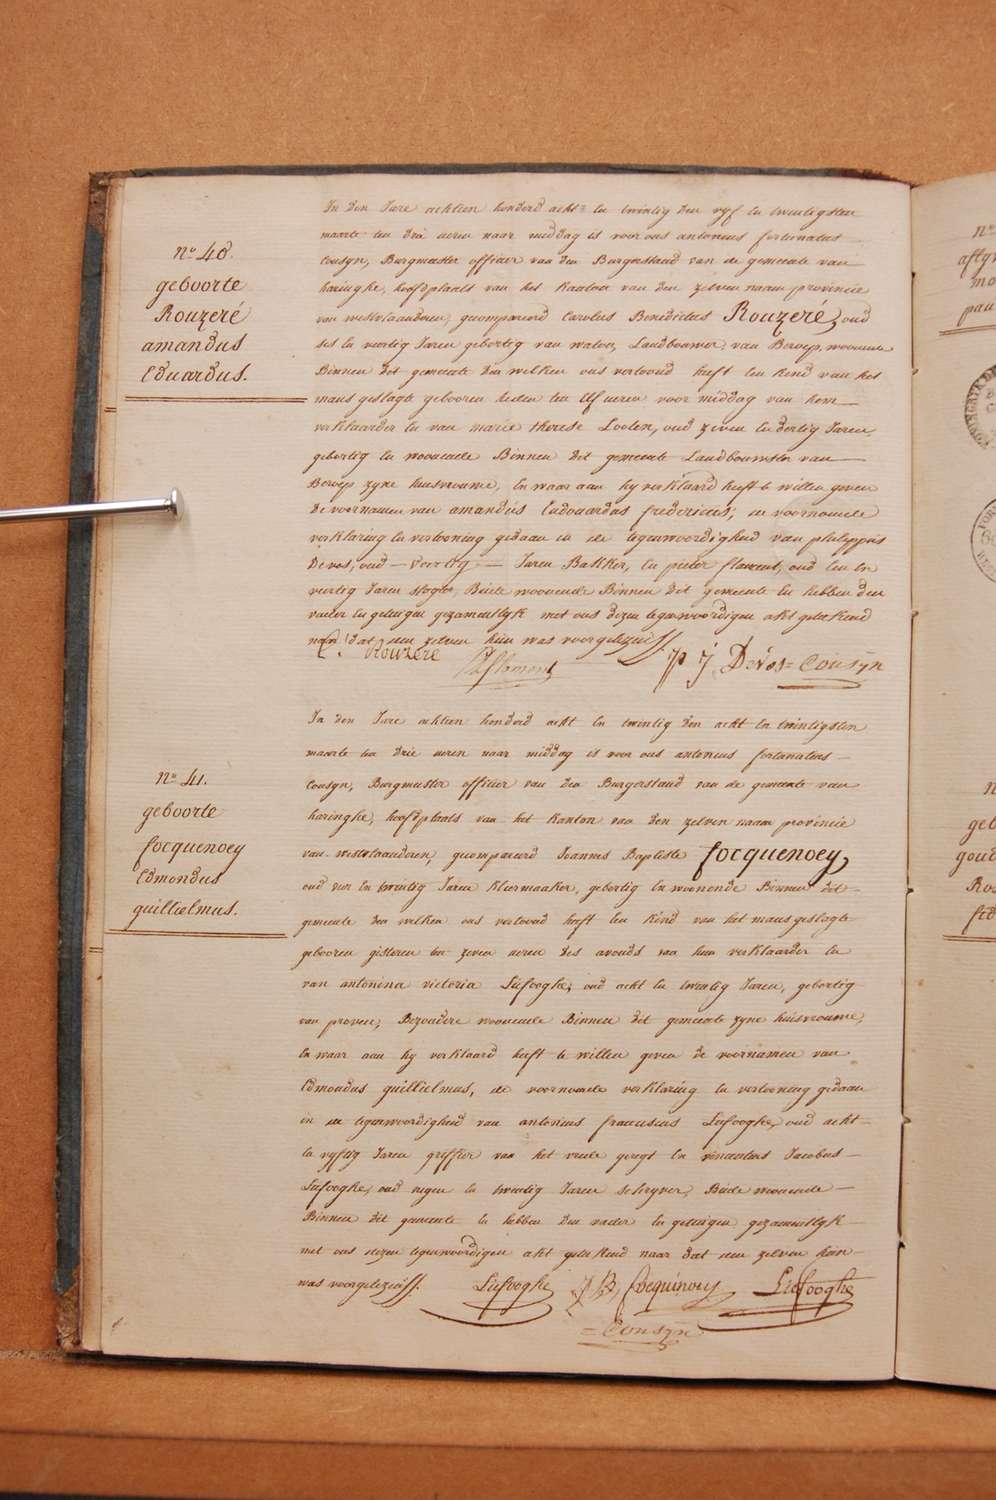 N° 40.
geboorte
Rouzeré
amandus
Eduardus.
In den Jare achtien honderd acht en twintig den vyf en twintigsten
maarte ten drie uren naar middag is voor ons antonius fortunatus
Cousyn, Burgmeester officier van den Burgerstand van de gemeente van
haringhe, hoofdplaats van het Kanton van den zelven naam provincie
van westvlaanderen, gecompareerd Carolus Benedictus Rouzeré, oud
ses en veertig Jaren gebortig van watou, Landbouwer van Beroep, woonende
Binnen dit gemeente den welken ons vertoond heeft een kind van het
mans geslagte gebooren heden ten elf uren voor middag van hem
verklaarder en van marie therese Loolen, oud zeven en dertig Jaren
gebortig en woonende Binnen dit gemeente Landbouwster van
Beroep zyne huisvrouwe, En waar aan hy verklaard heeft te willen geven
de voornamen van amandus Eudouardas fredericus, de voornoemde
verklaring en vertooning gedaan in de tegenwoordigheid van philippus
Devos, oud - Veertig - Jaren Bakker, en pieter flament, oud een en
veertig Jaren Beide woonende Binnen dit gemeente en hebben den
vader en getuigen gezamentlyk met ons dezen tegenwoordigen akt geteekend
naer dat den zelven hun was voorgelezen
C. Rouzere P flament p j Devos = Cousyn
N° 41.
geboorte
focquenoey
Edmondus
guillielmus.
In den Jare achtien honderd acht en twintig den acht en twintigsten
maarte ten drie uren naar middag is voor ons antonius fortunatus
Cousyn, Burgmeester officier van den Burgerstand van de gemeente van
haringhe, hoofdplaats van het Kanton van den zelven naam provincie
van westvlaanderen, gecompareerd Joannes Baptiste focquenoey,
oud vier en twintig Jaren Kleermaaker, gebortig en woonende Binnen dit
gemeente den welken ons vertoond heeft een kind van het mans geslagte
gebooren gisteren ten zeven uren des avonds van hem verklaarder en
van antonina victoria Liefooghe, oud acht en twintig Jaren, gebortig
van proven, Bezondere woonende Binnen dit gemeente zyne huisvrouwe,
En waar aan hy verklaard heeft te willen geven de voornamen van
Edmondus guillielmus, de voornoemde verklaring en vertooning gedaan
in de tegenwoordigheid van antonius franciscus Liefooghe, oud acht
en vyftig Jaren griffier van het vrede geregt en vincentius Jacobus
Liefooghe, oud negen en twintig Jaren schryver, Beide woonende
Binnen dit gemeente en hebben den vader en getuigen gezamentlyk
met ons dezen tegenwoordigen akt geteekend naar dat den zelven hun
was voorgelezen. Liefooghe JB, focquinoey Liefooghe
= Cousyn